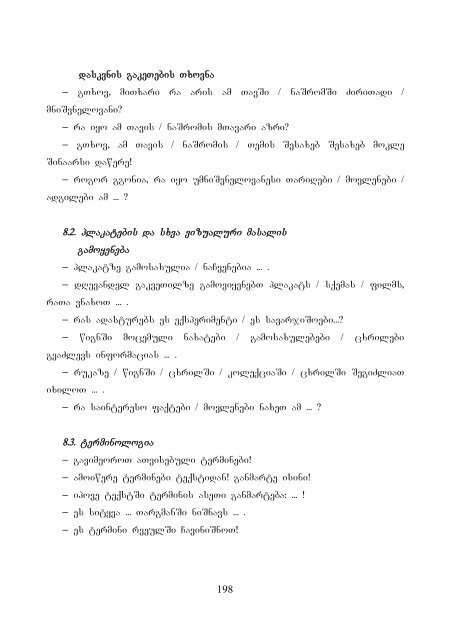 დასკვნის გაკეთების თხოვნა
– გთხოვ, მითხარი რა არის ამ თავში / ნაშრომში ძირითადი /
მნიშვნელოვანი?
– რა იყო ამ თავის / ნაშრომის მთავარი აზრი?
– გთხოვ, ამ თავის / ნაშრომის / თემის შესახებ შესახებ მოკლე
შინაარსი დაწერე!
– როგორ გგონია, რა იყო უმნიშვნელოვანესი თარიღები / მოვლენები /
ადგილები ამ ... ?
8.2. პლაკატების და სხვა ვიზუალური მასალის
გამოყენება
– პლაკატზე გამოსახულია / ნაჩვენებია ... .
– დღევანდელ გაკვეთილზე გამოვიყენებთ პლაკატს / სქემას / ფილმს,
რათა ვნახოთ ... .
– რას ადასტურებს ეს ექსპერიმენტი / ეს სავარჯიშოები...?
– წიგნში მოცემული ნახატები / გამოსახულებები / ცხრილები
გვაძლევს ინფორმაციას ... .
– რუკაზე / წიგნში / ცხრილში / კოლექციაში / ცხრილში შეგიძლიათ
იხილოთ ... .
– რა საინტერესო ფაქტები / მოვლენები ნახეთ ამ ... ?
8.3. ტერმინოლოგია
– გავიმეოროთ ათვისებული ტერმინები!
– ამოიწერე ტერმინები ტექსტიდან! განმარტე ისინი!
– იპოვე ტექსტში ტერმინის ასეთი განმარტება: ... !
– ეს სიტყვა ... თარგმანში ნიშნავს ... .
– ეს ტერმინი რვეულში ჩავინიშნოთ!
198